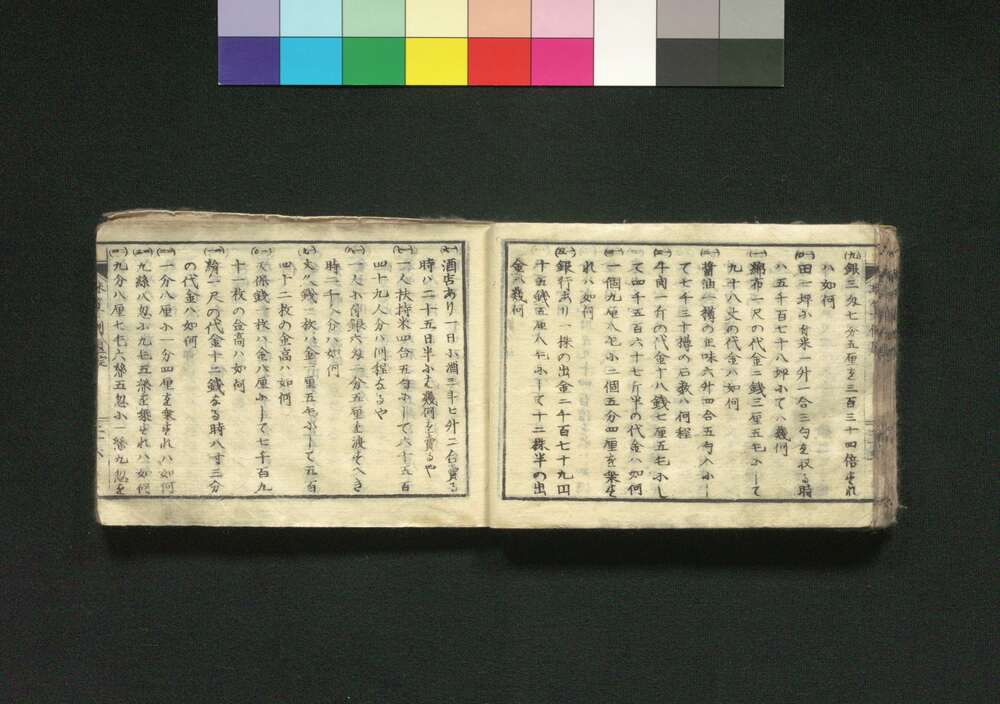 銀三匁七分五厘を三百三十四倍すれ
ハ如何
田一坪小有米一升一合三勺を収る時
ハ五千百七十八坪小てハ幾何
綿布一尺の代金二銭三厘五毛小して
九十八丈の代金ハ如何
醤油一樽の正味六升四合五勺入小し
て七千三十樽の石数ハ何程
牛肉一斤の代金十八銭七厘五毛小し
て四千五百六十七斤半の代金ハ如何
一個九厘八毛小二個五分四厘を乗す
れハ如何
銀行あり一株の出金二千百七十九円
十五銭五厘八毛小して十二株半の出
金ハ幾何
酒店あり一日小酒三斗七升二合賣る
時ハ二十五日半小て幾何を賣るや
一人扶持米四合五勺小して六十五百
四十九人分ハ何程なるや
一人小付銀六匁一分五厘を渡すへき
時二千八分ハ如何
文久銭一枚ハ金一厘五毛小して五百
四十二枚の金高ハ如何
天保銭一枚ハ金八厘小して七千百九
十一枚の金高ハ如何
絹一尺の代金十二銭なる時八寸三分
の代金ハ如何
一分八厘小一分四厘を乗すれハ如何
九絲八忽小九毛五絲を乗すれハ如何
九分八厘七毛六絲五忽小一絲九忽を